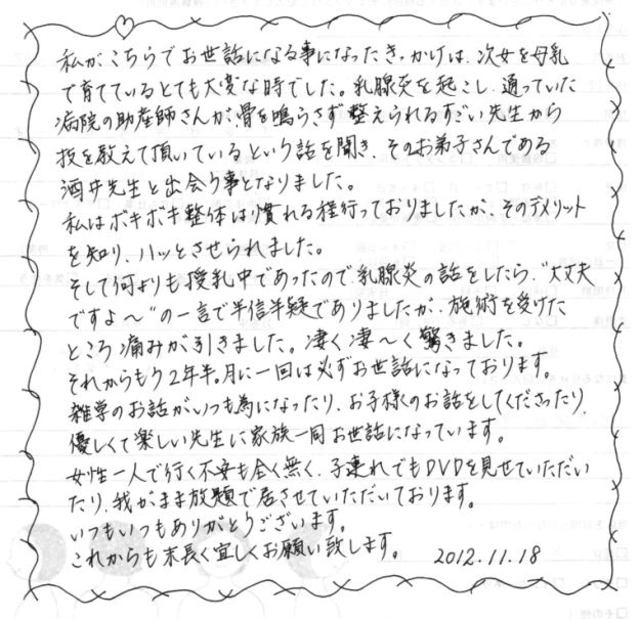 私が、こちらでお世話になる事になったきっかけは、次女を母乳
で育てているとても大変な時でした。乳腺炎を起こし、通っていた
病院の助産師さんが、骨を鳴らさず整えられるすごい先生から
技を教えて頂いているという話を聞き、そのお弟子さんである
酒井先生と出会う事となりました。
私はボキボキ整体は慣れる程行っておりましたが、そのデメリット
を知り、ハッとさせられました。
そして何よりも授乳中であったので、乳腺炎の話をしたら、"大丈夫
ですよ～"の一言で半信半疑でありましたが、施術を受けた
ところ痛みが引きました。凄く凄～く驚きました。
それからもう2年半。月に一回は必ずお世話になっております。
雑学のお話がいつも為になったり、お子様のお話をしてくださったり、
優しくて楽しい先生に家族一同お世話になっています。
女性一人で行く不安も全く無く、子連れでもDVDを見せていただい
たり、我がまま放題で居させていただいております。
いつもいつもありがとうございます。
これからも末長く宜しくお願い致します。 2012.11.18